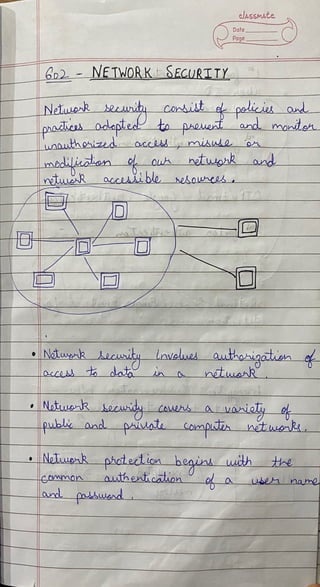 classmate
Date
Page
602 - NETWORK SECURITY
Network security consist of policies and
practices adopted to prevent and monitor
unauthorized access, misuse or
modification of our network and
network accessible resources.
• Network security involves authorization of
access to data in a network.
• Network security covers a variety of
public and private computer networks.
• Network protection begins with the
common authentication of a user name
and password.